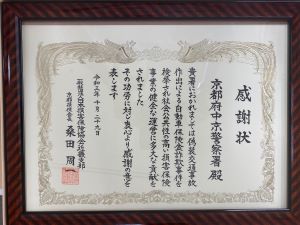 感謝状
京都府中京警察署 殿
貴署におかれましては偽装交通事故
作出による自動車保険金詐欺事件を
検挙され社会公共性の高い損害保険
事業の健全な運営に多大な貢献を
されました
その功労に対し衷心より感謝の意を
表します
令和三年十月二十九日
一般社団法人日本損害保険協会近畿支部
桑田 周